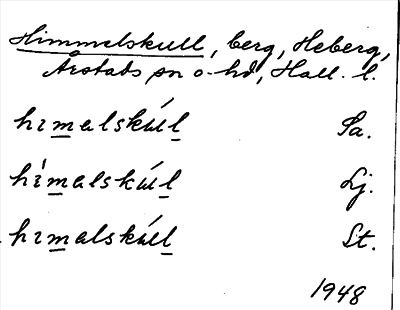 Himmelskull, berg, Heberg,
Årstads sn o. hd, Hall. l.
hımalskúl Sa.
hímalskúl Lj.
hımalskúl St.
1948